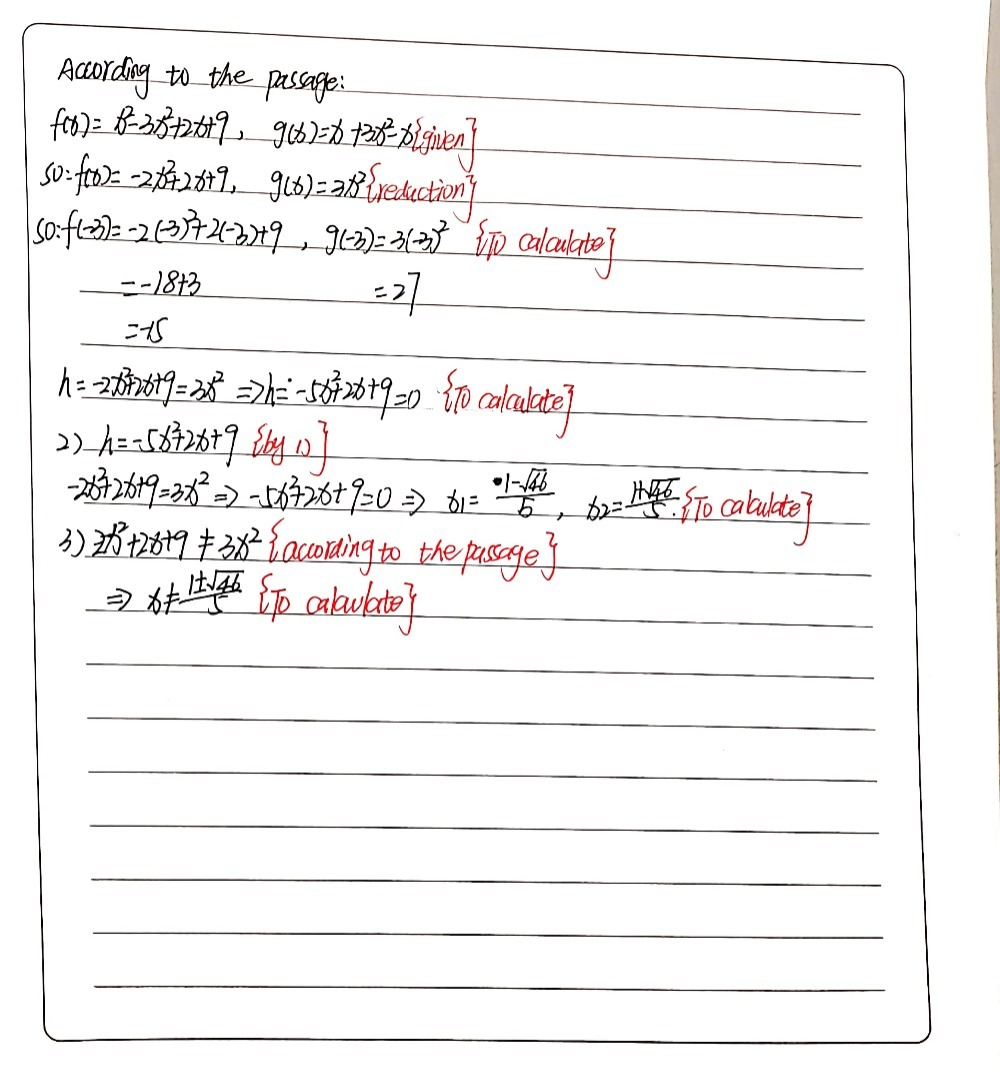 According to the passage:
f(x)= x²-3x²+2x+9, g(x)=x+3x²-x{given}
so:f(x)=-2x²+2x+9, g(x)=3x²{reduction}
so:f(-3)=-2(-3)²+2(-3)+9, g(-3)=3(-3)² {To calculate}
=-18+3 =27
=-15
h=-2x²+2x+9=3x² ⇒h=-5x²+2x+9=0 {To calculate}
2) h=-5x²+2x+9 {by 1)}
-2x²+2x+9=3x² ⇒ -5x²+2x+9=0 ⇒ x1=(1-√46)/5, x2=(1+√46)/5.{To calculate}
3) 2x²+2x+9≠3x² {according to the passage}
⇒ x≠(1±√46)/5 {To calculate}